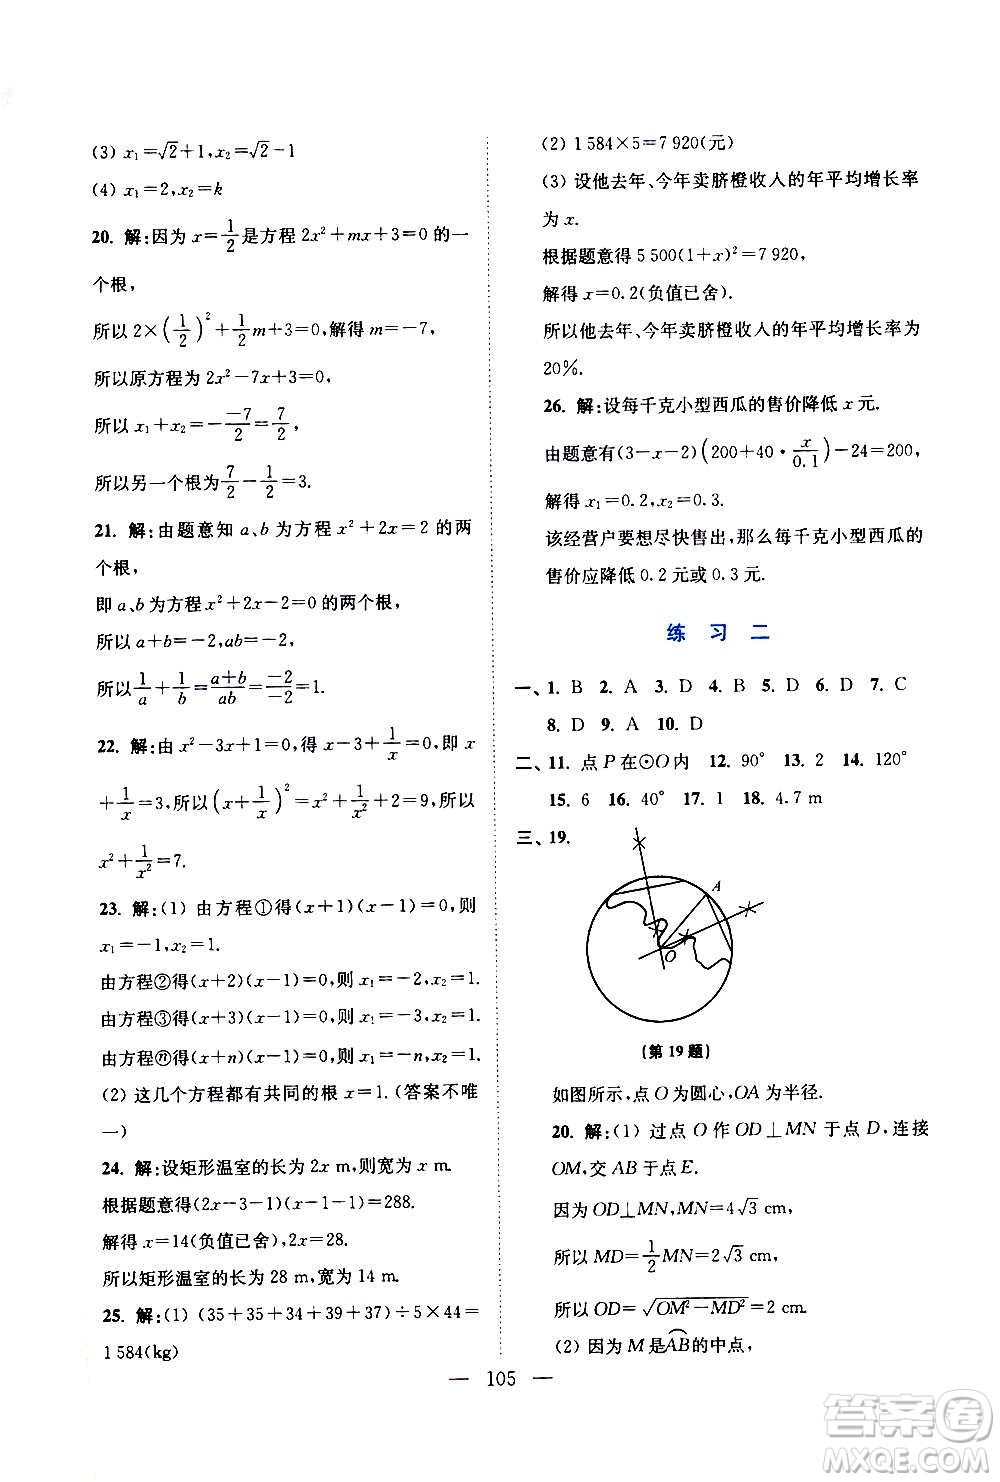 (3) x₁=√2+1,x₂=√2-1
(4) x₁=2,x₂=k
20. 解:因为 x=1/2是方程 2x²+mx+3=0 的一
个根,
所以 2×(1/2)²+1/2m+3=0,解得 m=-7,
所以原方程为 2x²-7x+3=0,
所以 x₁+x₂=-(-7)/2=7/2,
所以另一个根为7/2-1/2=3.
21. 解:由题意知 a、b 为方程 x²+2x=2 的两
个根,
即 a、b 为方程 x²+2x-2=0 的两个根,
所以 a+b=-2,ab=-2,
所以1/a+1/b=(a+b)/ab=(-2)/(-2)=1.
22. 解:由 x²-3x+1=0,得 x-3+1/x=0,即 x
+1/x=3,所以(x+1/x)²=x²+1/x²+2=9,所以
x²+1/x²=7.
23. 解:(1) 由方程①得(x+1)(x-1)=0,则
x₁=-1,x₂=1.
由方程②得(x+2)(x-1)=0,则 x₁=-2,x₂=1.
由方程③得(x+3)(x-1)=0,则 x₁=-3,x₂=1.
由方程ⓝ得(x+n)(x-1)=0,则 x₁=-n,x₂=1.
(2) 这几个方程都有共同的根 x=1.(答案不唯
一)
24. 解:设矩形温室的长为 2x m,则宽为 x m.
根据题意得(2x-3-1)(x-1-1)=288.
解得 x=14(负值已舍),2x=28.
所以矩形温室的长为 28 m,宽为 14 m.
25. 解:(1) (35+35+34+39+37)÷5×44=
1 584(kg)
(2) 1 584×5=7 920(元)
(3) 设他去年、今年卖脐橙收入的年平均增长率
为 x.
根据题意得 5 500(1+x)²=7 920,
解得 x=0.2(负值已舍).
所以他去年、今年卖脐橙收入的年平均增长率为
20%.
26. 解:设每千克小型西瓜的售价降低 x 元.
由题意有(3-x-2)(200+40·x/0.1)-24=200,
解得 x₁=0.2,x₂=0.3.
该经营户要想尽快售出,那么每千克小型西瓜的
售价应降低 0.2 元或 0.3 元.
练 习 二
一、1. B 2. A 3. D 4. B 5. D 6. D 7. C
8. D 9. A 10. D
二、11. 点 P 在⊙O 内 12. 90° 13. 2 14. 120°
15. 6 16. 40° 17. 1 18. 4.7 m
三、19.
A
O
(第 19 题)
如图所示,点 O 为圆心,OA 为半径.
20. 解:(1) 过点 O 作 OD⊥MN 于点 D,连接
OM,交 AB 于点 E.
因为 OD⊥MN,MN=4√3 cm,
所以 MD=1/2MN=2√3 cm,
所以 OD=√(OM²-MD²)=2 cm.
(2) 因为 M 是A͡B的中点,
— 105 —
答案卷
MXQE.COM